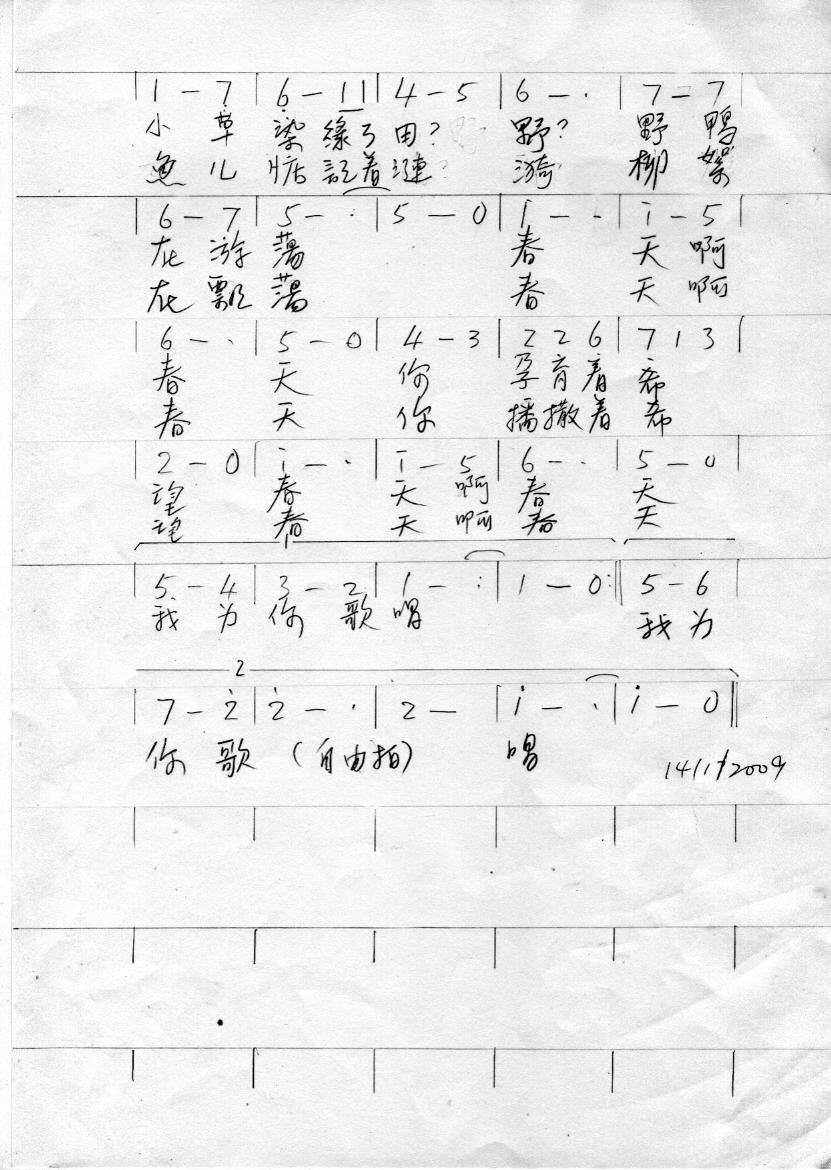 1 - 7 | 6 - 1 1 | 4 - 5 | 6 - · | 7 - 7
小 草 染 綠了 田? 野? 野 鴨
魚 儿 惦 記着 漣? 漪 柳 絮
6 - 7 | 5 - · | 5 - 0 | i - - | i - 5
在 游 蕩 春 天 啊
在 飄 蕩 春 天 啊
6 - · | 5 - 0 | 4 - 3 | 2 2 6 | 7 1 3
春 天 你 孕育着 希
春 天 你 播撒着 希
2 - 0 | i - · | i - 5 | 6 - · | 5 - 0
望 春 天 啊 春 天
望 春 天 啊 春 天
5 - 4 | 3 - 2 | 1 - · | 1 - 0 :|| 5 - 6
我 为 你 歌 唱 我 为
2
7 - 2 | 2 - · | 2 - | i - · | i - 0 ||
你 歌 (自由拍) 唱 14/1/2009